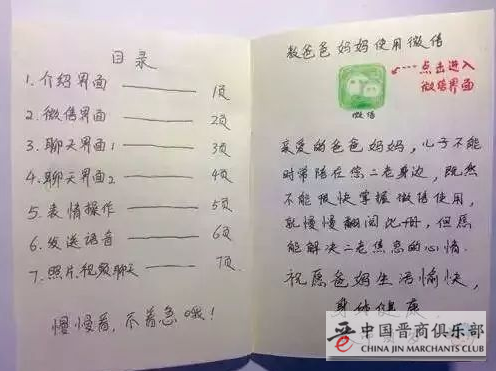 目录
1. 介绍界面 —— 1页
2. 微信界面 —— 2页
3. 聊天界面1 —— 3页
4. 聊天界面2 —— 4页
5. 表情操作 —— 5页
6. 发送语音 —— 6页
7. 照片.视频聊天 —— 7页
慢慢看，不着急哦！
教爸爸妈妈使用微信
点击进入
微信界面
微信
亲爱的爸爸妈妈，儿子不能
时常陪在您二老身边，既然
不能很快掌握微信使用，
就慢慢翻阅此册，但愿
能解决二老焦急的心情.
祝愿爸妈生活愉快，
身体健康
中国晋商俱乐部
CHINA JIN MARCHANTS CLUB